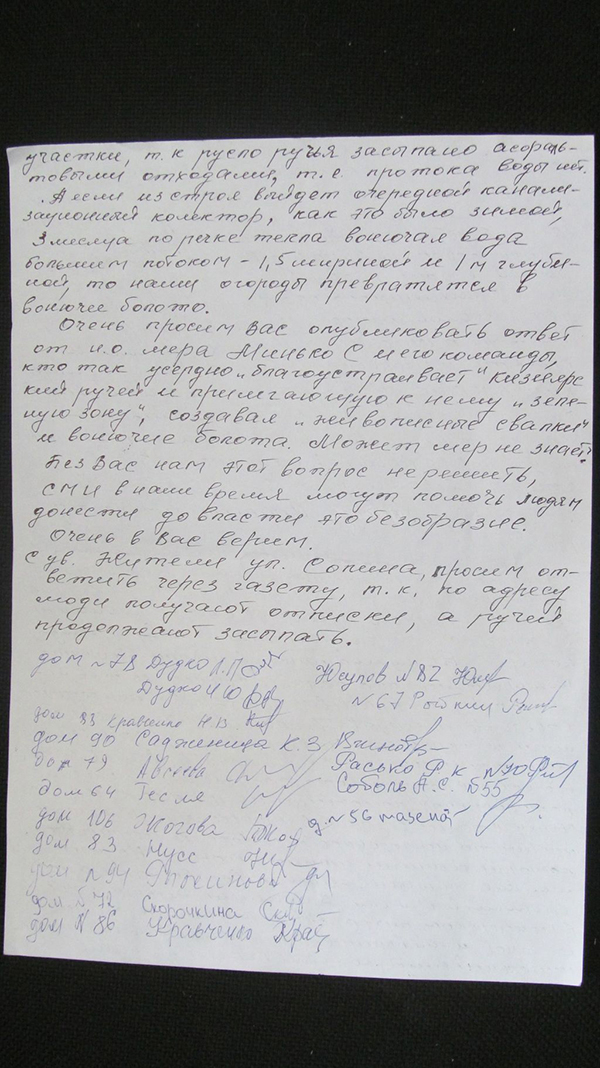 участки, т.к русло ручья засыпано асфаль-
товыми отходами, т.е. протока воды нет.
А если из строя выйдет очередной канали-
зационный колектор, как это было зимой,
3 месяца по речке текла вонючая вода
большим потоком - 1,5 шириной и 1 м глуби-
ной, то наши огороды превратятся в
вонючие болото.
Очень просим Вас опубликовать ответ
от и.о. мера Минько С и его команды,
кто так усердно „благоустраивает" Кизнерс
кий ручей и примегающую к нему „зеле-
ную зону", создавая „живописные свалки"
и вонючие болота. Может мер не знает?
Без Вас нам этот вопрос не решить,
СМИ в наше время могут помочь людям
донести до власти это безобразие.
Очень в Вас верим.
С ув. Жители ул. Сопина, просим от-
ветить через газету, т.к. по адресу
люди получают отписки, а ручей
продолжают засыпать.
дом №78 Дудко Л.П
Дудко Н Ю
Юсупов №82
№67
дом 83 Кравченко Н.В
дом 90 Садженица К.З
дом 79 Авдеева
Расько Р.К №70
дом 64 Тесля
Соболь А.С. №55
дом 106 Жогова
д. №56
дом 83 Мусс
дом №94
дом №72 Скорочкина
дом №86 Кравченко